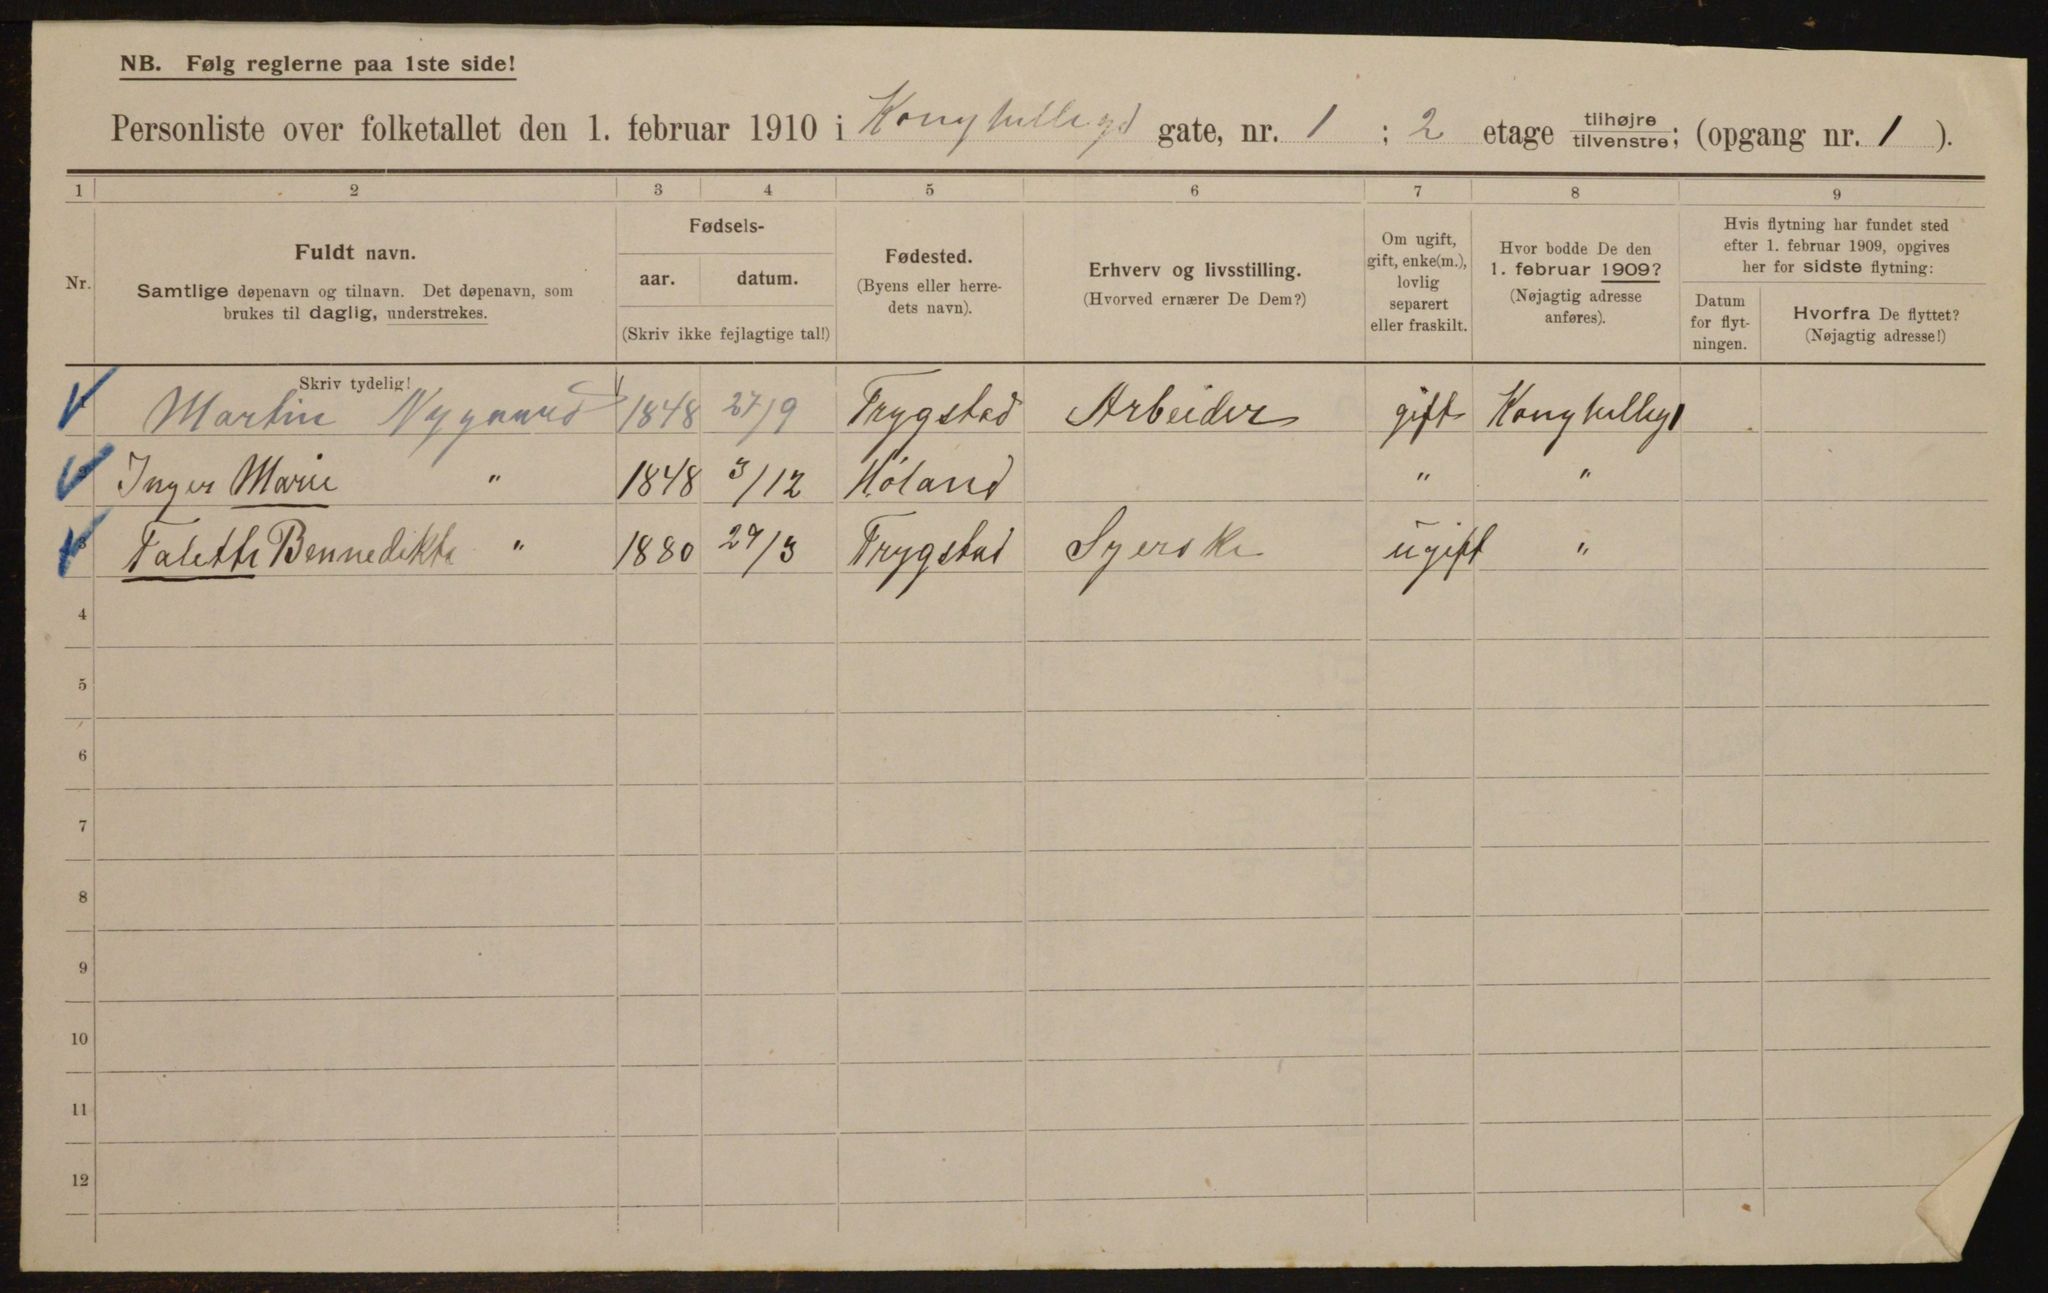 NB. Følg reglerne paa 1ste side!
Personliste over folketallet den 1. februar 1910 i Kongshellegd gate, nr. 1 ; 2 etage tilhøjre tilvenstre; (opgang nr. 1 ).
1 2 3 4 5 6 7 8 9
Nr.
Fuldt navn.
Samtlige døpenavn og tilnavn. Det døpenavn, som
brukes til daglig, understrekes.
Skriv tydelig!
Fødsels-
aar. datum.
(Skriv ikke fejlagtige tal!)
Fødested.
(Byens eller herre-
dets navn).
Erhverv og livsstilling.
(Hvorved ernærer De Dem?)
Om ugift,
gift, enke(m.),
lovlig
separert
eller fraskilt.
Hvor bodde De den
1. februar 1909?
(Nøjagtig adresse
anføres).
Hvis flytning har fundet sted
efter 1. februar 1909, opgives
her for sidste flytning:
Datum
for flyt-
ningen.
Hvorfra De flyttet?
(Nøjagtig adresse!)
Martin Nygaard 1848 27/9 Trygstad Arbeider gift Konghelleg 1
Inger Marie " 1848 3/12 Høland " "
3 Taletth Bennedikte " 1880 27/3 Trygstad Syerske ugift "
4
5
6
7
8
9
10
11
12